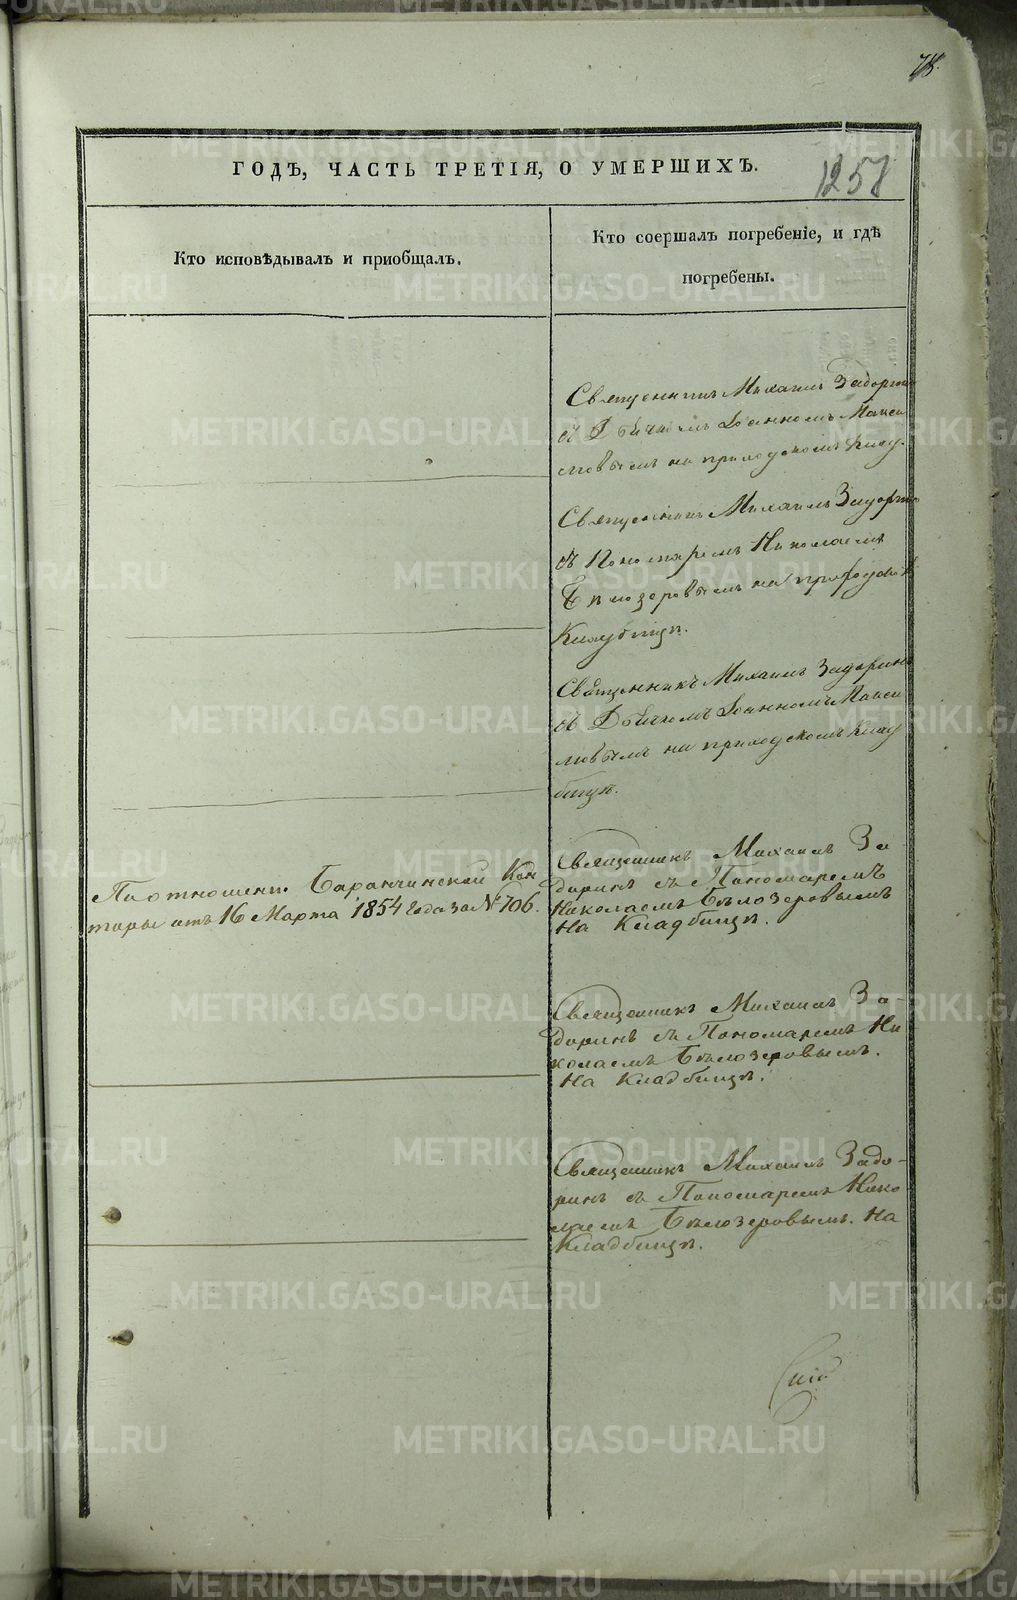 78.
1258
ГОДѢ, ЧАСТЬ ТРЕТІЯ, О УМЕРШИХЪ.
Кто исповѣдывалъ и приобщалъ.
Кто соершалъ погребеніе, и гдѣ
погребены.
Священникъ Михаилъ Задоринъ
съ Дьячкомъ Іоанномъ Макси
мовымъ на приходскомъ клад.
Священникъ Михаилъ Задоринъ
съ Пономаремъ Николаемъ
Бѣлозеровымъ на приходскомъ
Кладбищѣ.
Священникъ Михаилъ Задоринъ
съ Дьячкомъ Іоанномъ Макси
мовымъ на приходскомъ клад
бищѣ.
По отношенію Баранчинской Кон
торы отъ 16 Марта 1854 года за № 706.
Священникъ Михаилъ За
доринъ съ Пономаремъ
Николаемъ Бѣлозеровымъ
На Кладбищѣ.
Священникъ Михаилъ За-
доринъ съ Пономаремъ Ни
колаемъ Бѣлозеровымъ.
На Кладбищѣ.
Священникъ Михаилъ Задо-
ринъ съ Пономаремъ Нико
лаемъ Бѣлозеровымъ. На
Кладбищѣ.
METRIKI.GASO-URAL.RU